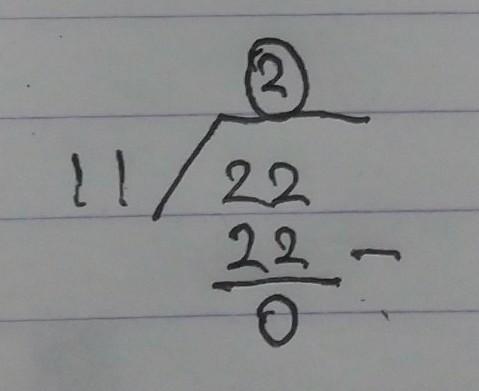 2
11 22
22 -
0